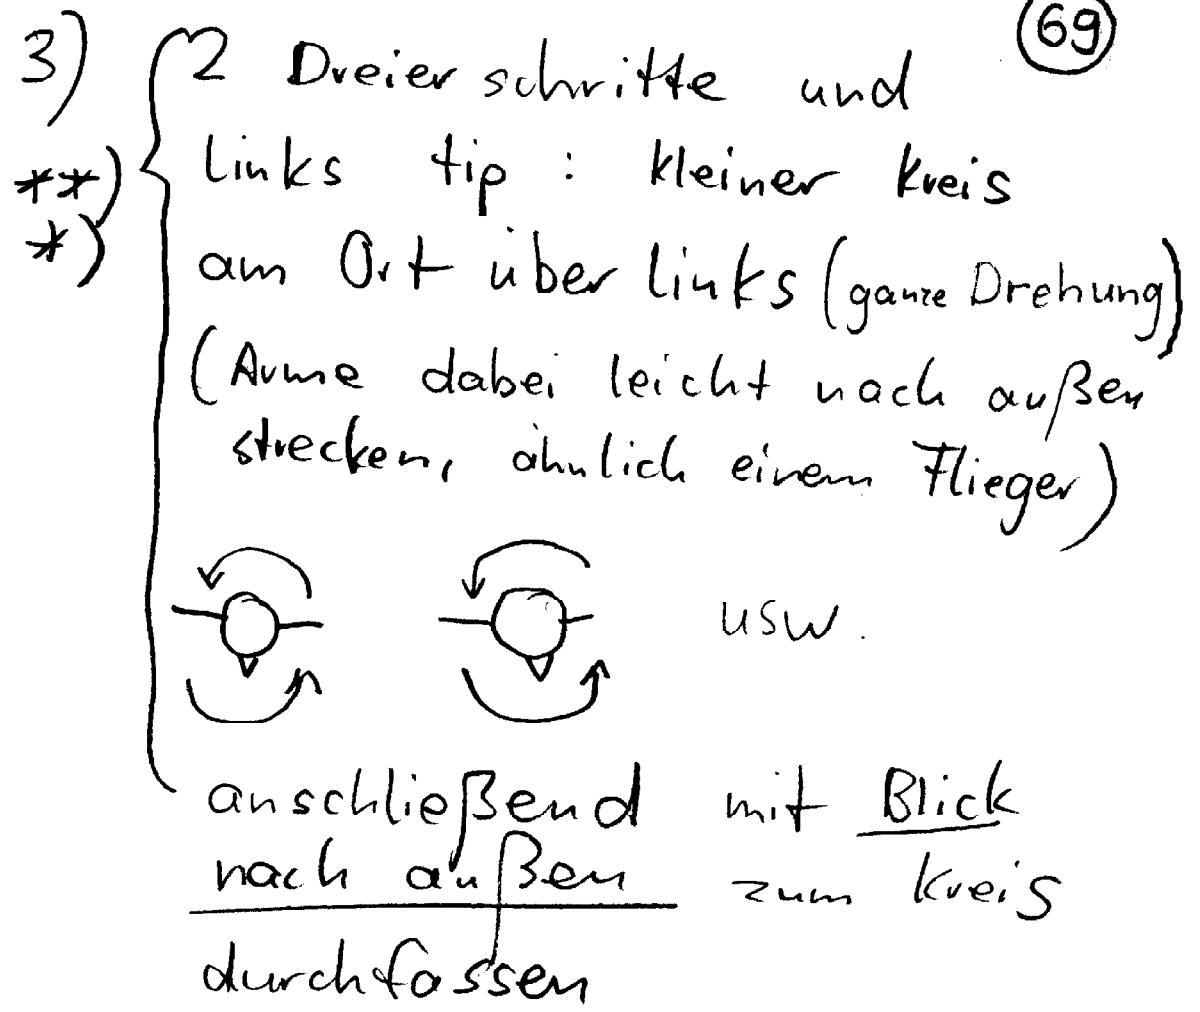 69
3) 2 Dreierschritte und
**) links tip : kleiner Kreis
*) am Ort über links (ganze Drehung)
(Arme dabei leicht nach außen
strecken, ähnlich einem Flieger)
usw.
anschließend mit Blick
nach außen zum Kreis
durchfassen